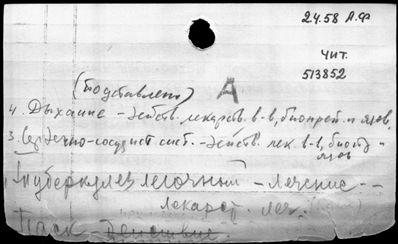 24.58 А.Ф
чит.
513852
(Подставлено) А
4. Дыхание - действ. лекарств. в-в, биопреп. и ядов,
3. Сердечно-сосудист. сист. - действ. лек. в-в, биопр. и
ядов
Туберкулез легочный - лечение --
лекарст. леч.
Паск - действие